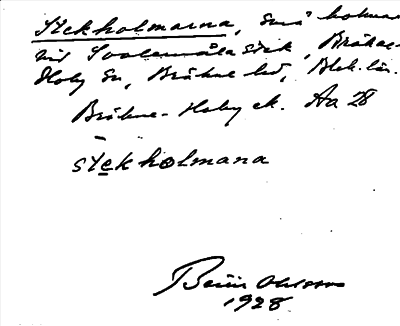 Stekholmarna, små holmar
vid Soolemåla stek, Bräkne-
Hoby sn, Bräkne hd, Blek. län.
Bräkne-Hoby ek. Aa 28
stekholmana
Ohlsson
1928.